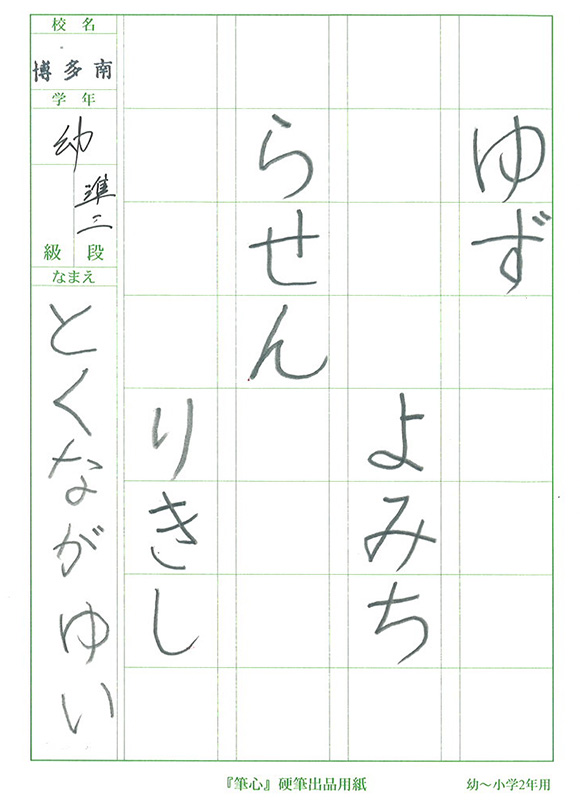 ゆず
よみち
らせん
りきし
校名
博多南
学年
幼
準二
級 段
なまえ
とくながゆい
『筆心』硬筆出品用紙
幼～小学2年用